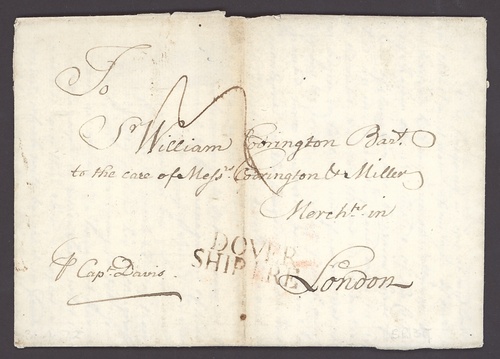 To
Sr. William Codrington Bart.
to the care of Messrs. Codrington & Miller
Merchts. in
London
DOVER
SHIP LRE
⅌ Capt. Davis